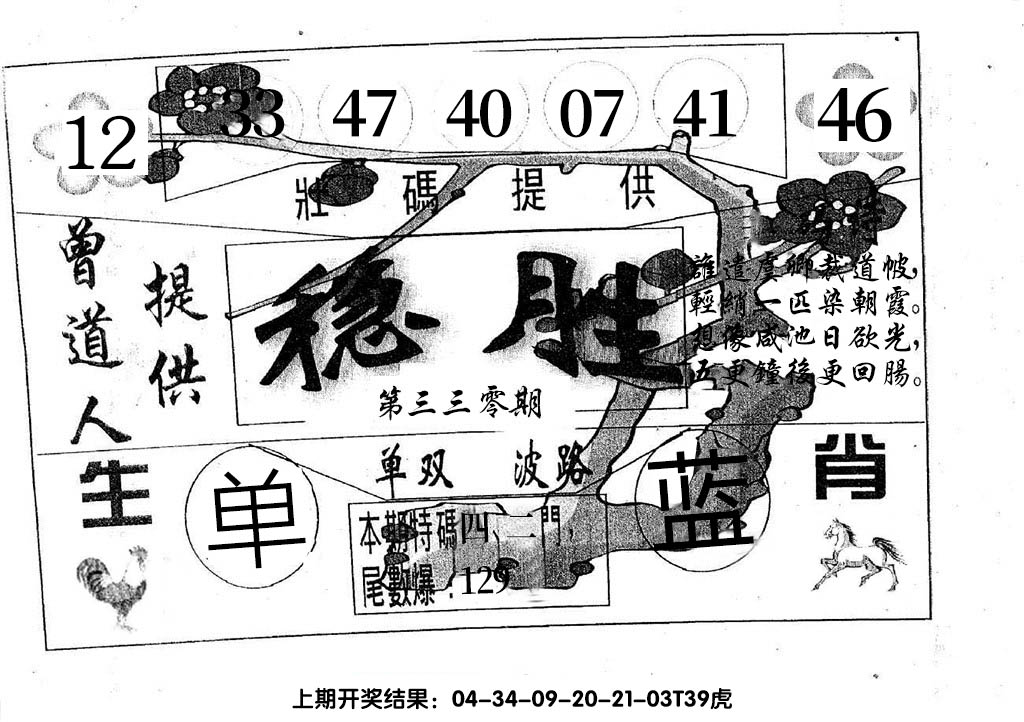 12 33 47 40 07 41 46
壯碼提供
曾道人
提供
稳胜
第三三零期
誰遣虞卿裁道帔，
輕綃一匹染朝霞。
想像咸池日欲光，
五更鐘後更回腸。
单双 波路
生 肖
单 蓝
本期特碼四、二門，
尾數爆：129
上期开奖结果：04-34-09-20-21-03T39虎